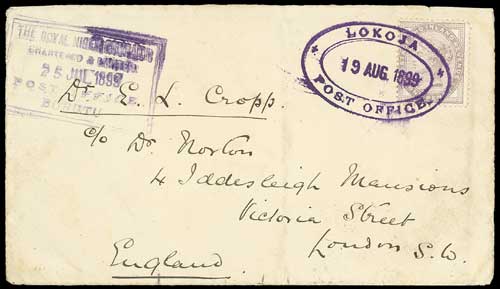 THE ROYAL NIGER
CHARTERED & LIMITED
25 JUL 1899
POST OFFICE.
LOKOJA
19 AUG. 1899
POST OFFICE.
Dr E. L. Cropp.
c/o Dr. Norton
4 Iddesleigh Mansions
Victoria Street
London S.W.
England.